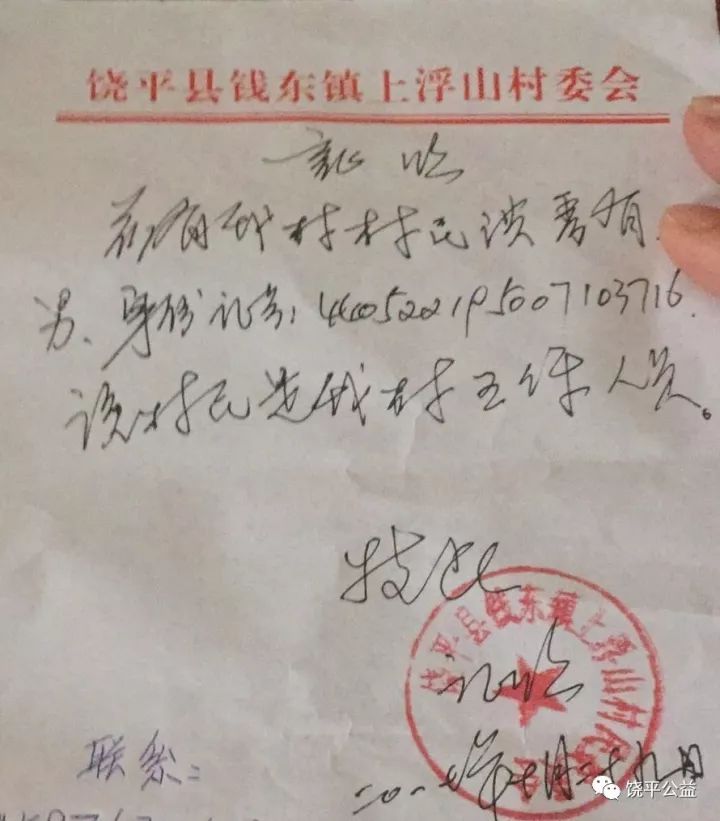 饶平县钱东镇上浮山村委会
证明
兹有我村村民
男、身份证号:440522195007103716.
该村民是我村五保人员。
特此
证明
饶平县钱东镇上浮山村民
二0一七年十月二十九日
联系:
饶平公益